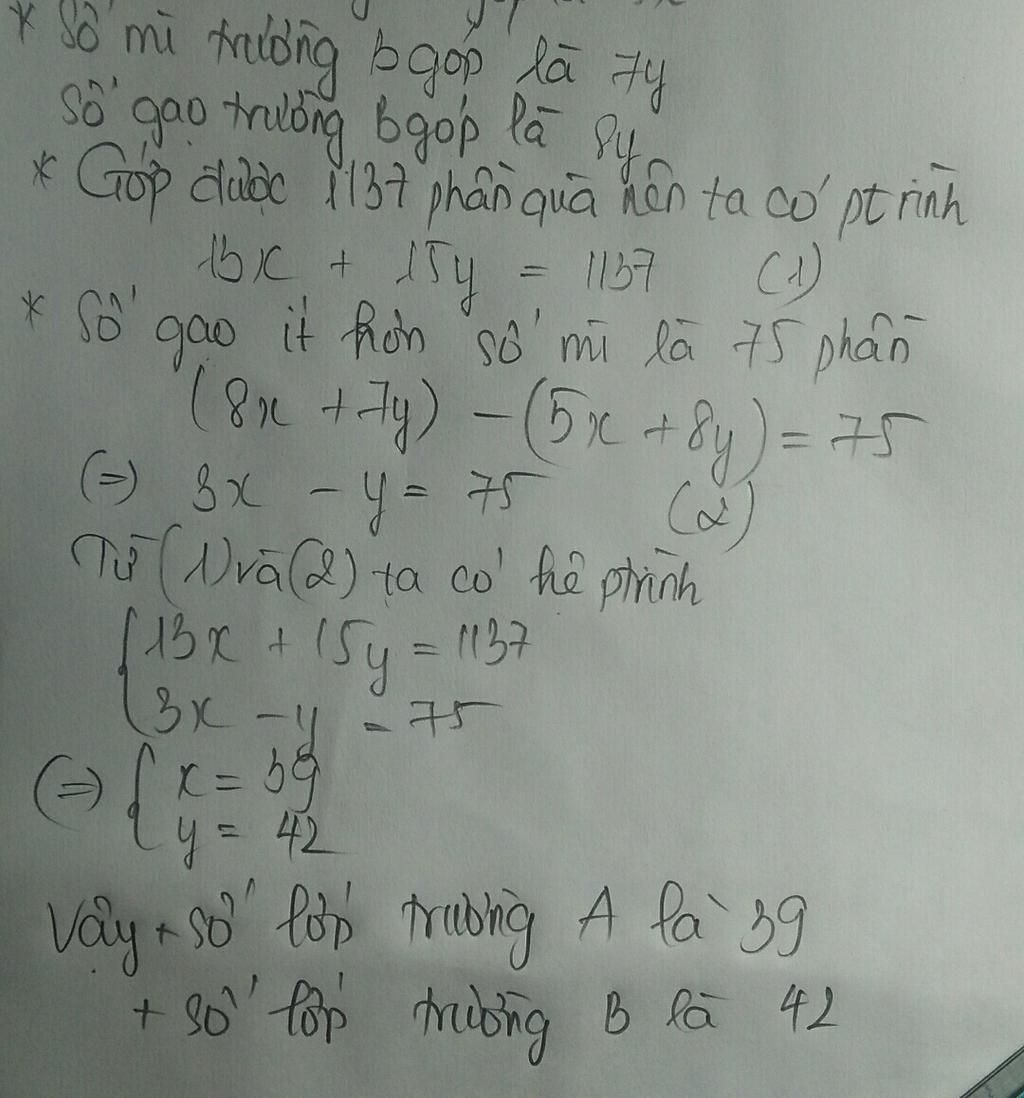 * Số mì trường b góp là 7y
Số gạo trường B góp là 8y
* Góp được 1137 phần quà nên ta có ptrình
13x + 15y = 1137 (1)
* Số gạo ít hơn số mì là 75 phần
(8x + 7y) - (5x + 8y) = 75
(=) 3x - y = 75 (2)
Từ (1) và (2) ta có hệ ptrình
{ 13x + 15y = 1137
3x - y = 75
(=) { x = 39
y = 42
Vậy + số lớp trường A là 39
+ số lớp trường B là 42